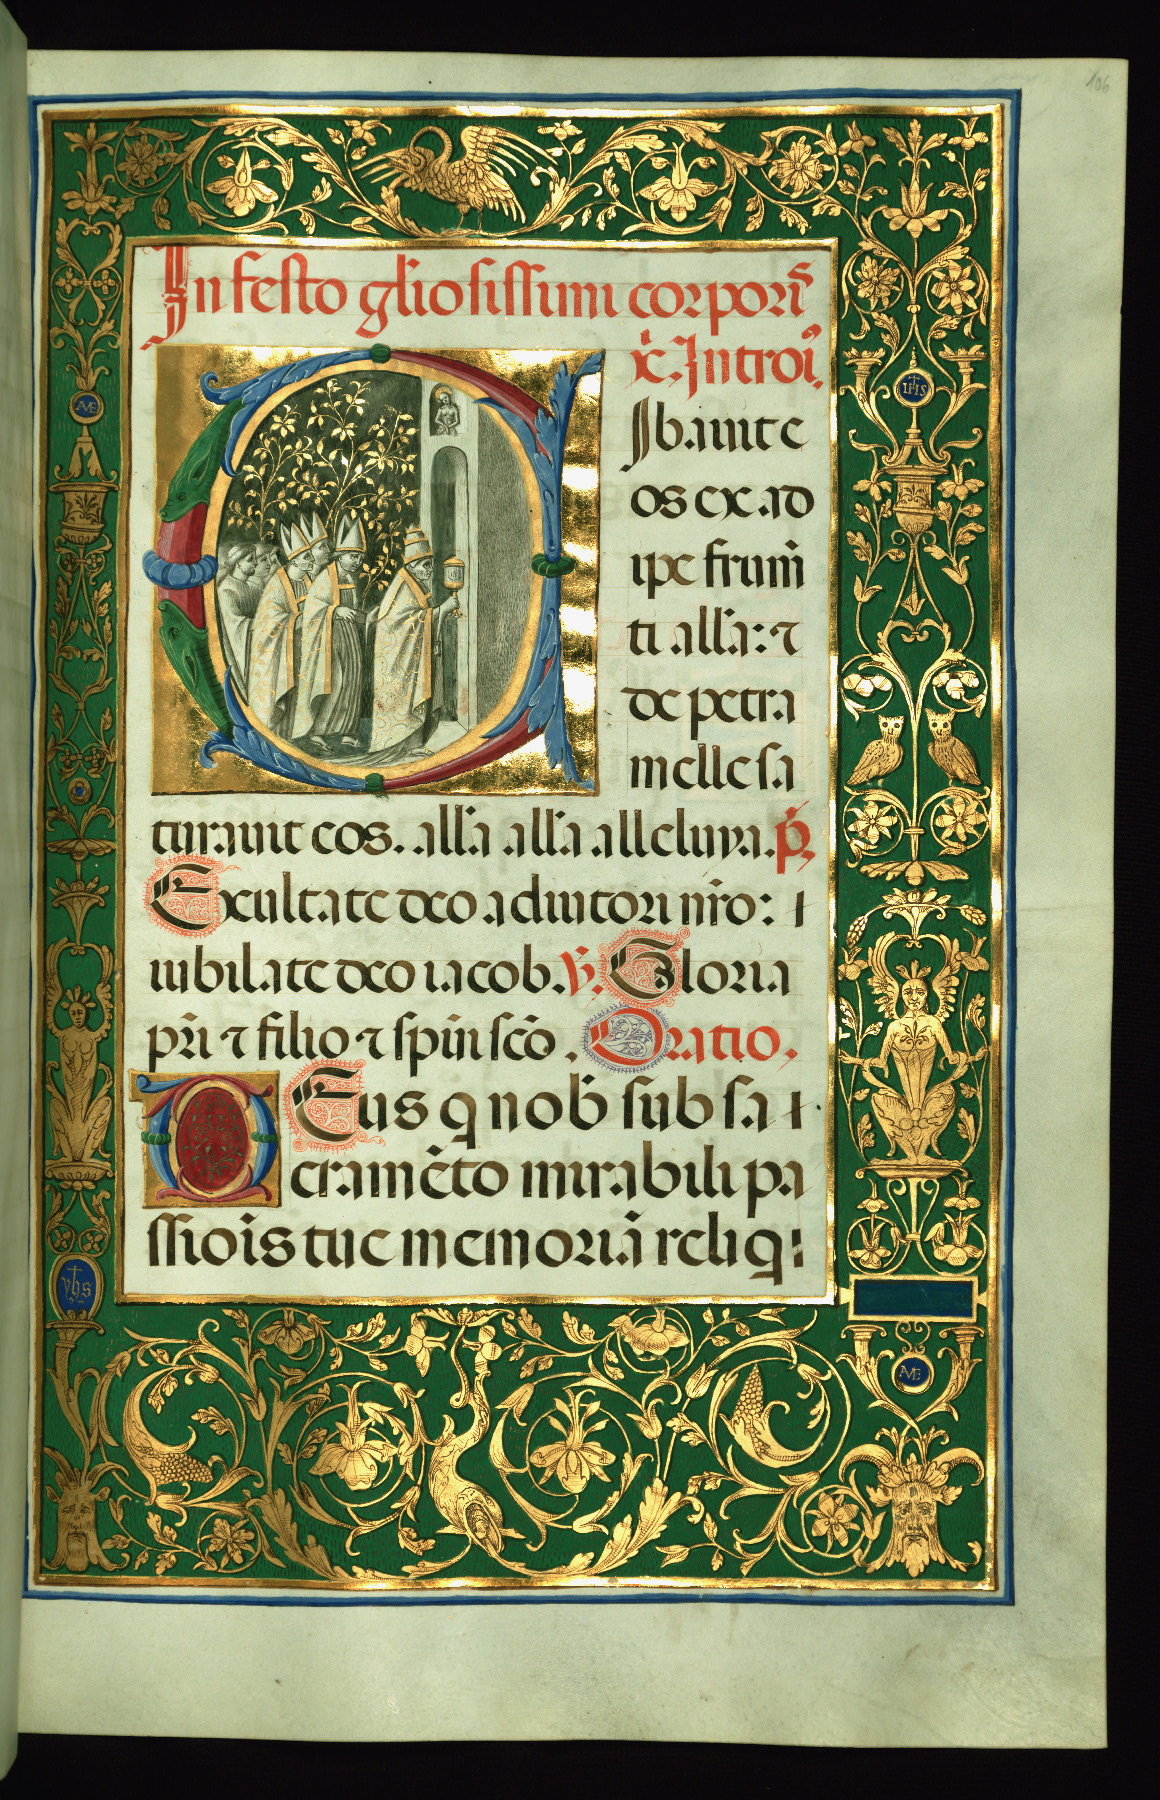 106
In festo gl̄iosissimi corporis̄
xc̄. Introiꝰ.
Cibauit e
os ex ad
ipe frum̄
ti all̄a: ⁊
de petra
melle sa
turauit eos. all̄a all̄a alleluya. p̄s.
Exultate deo adiutori nr̄o: i
iubilate deo iacob. v̄. Gloria
pr̄i ⁊ filio ⁊ spiūi sc̄o. Oratio.
Deus q nob̄ sub sa
cramēto mirabili pa
ssiōis tue memoriā reliq
AVE
IHS
yhs
AVE